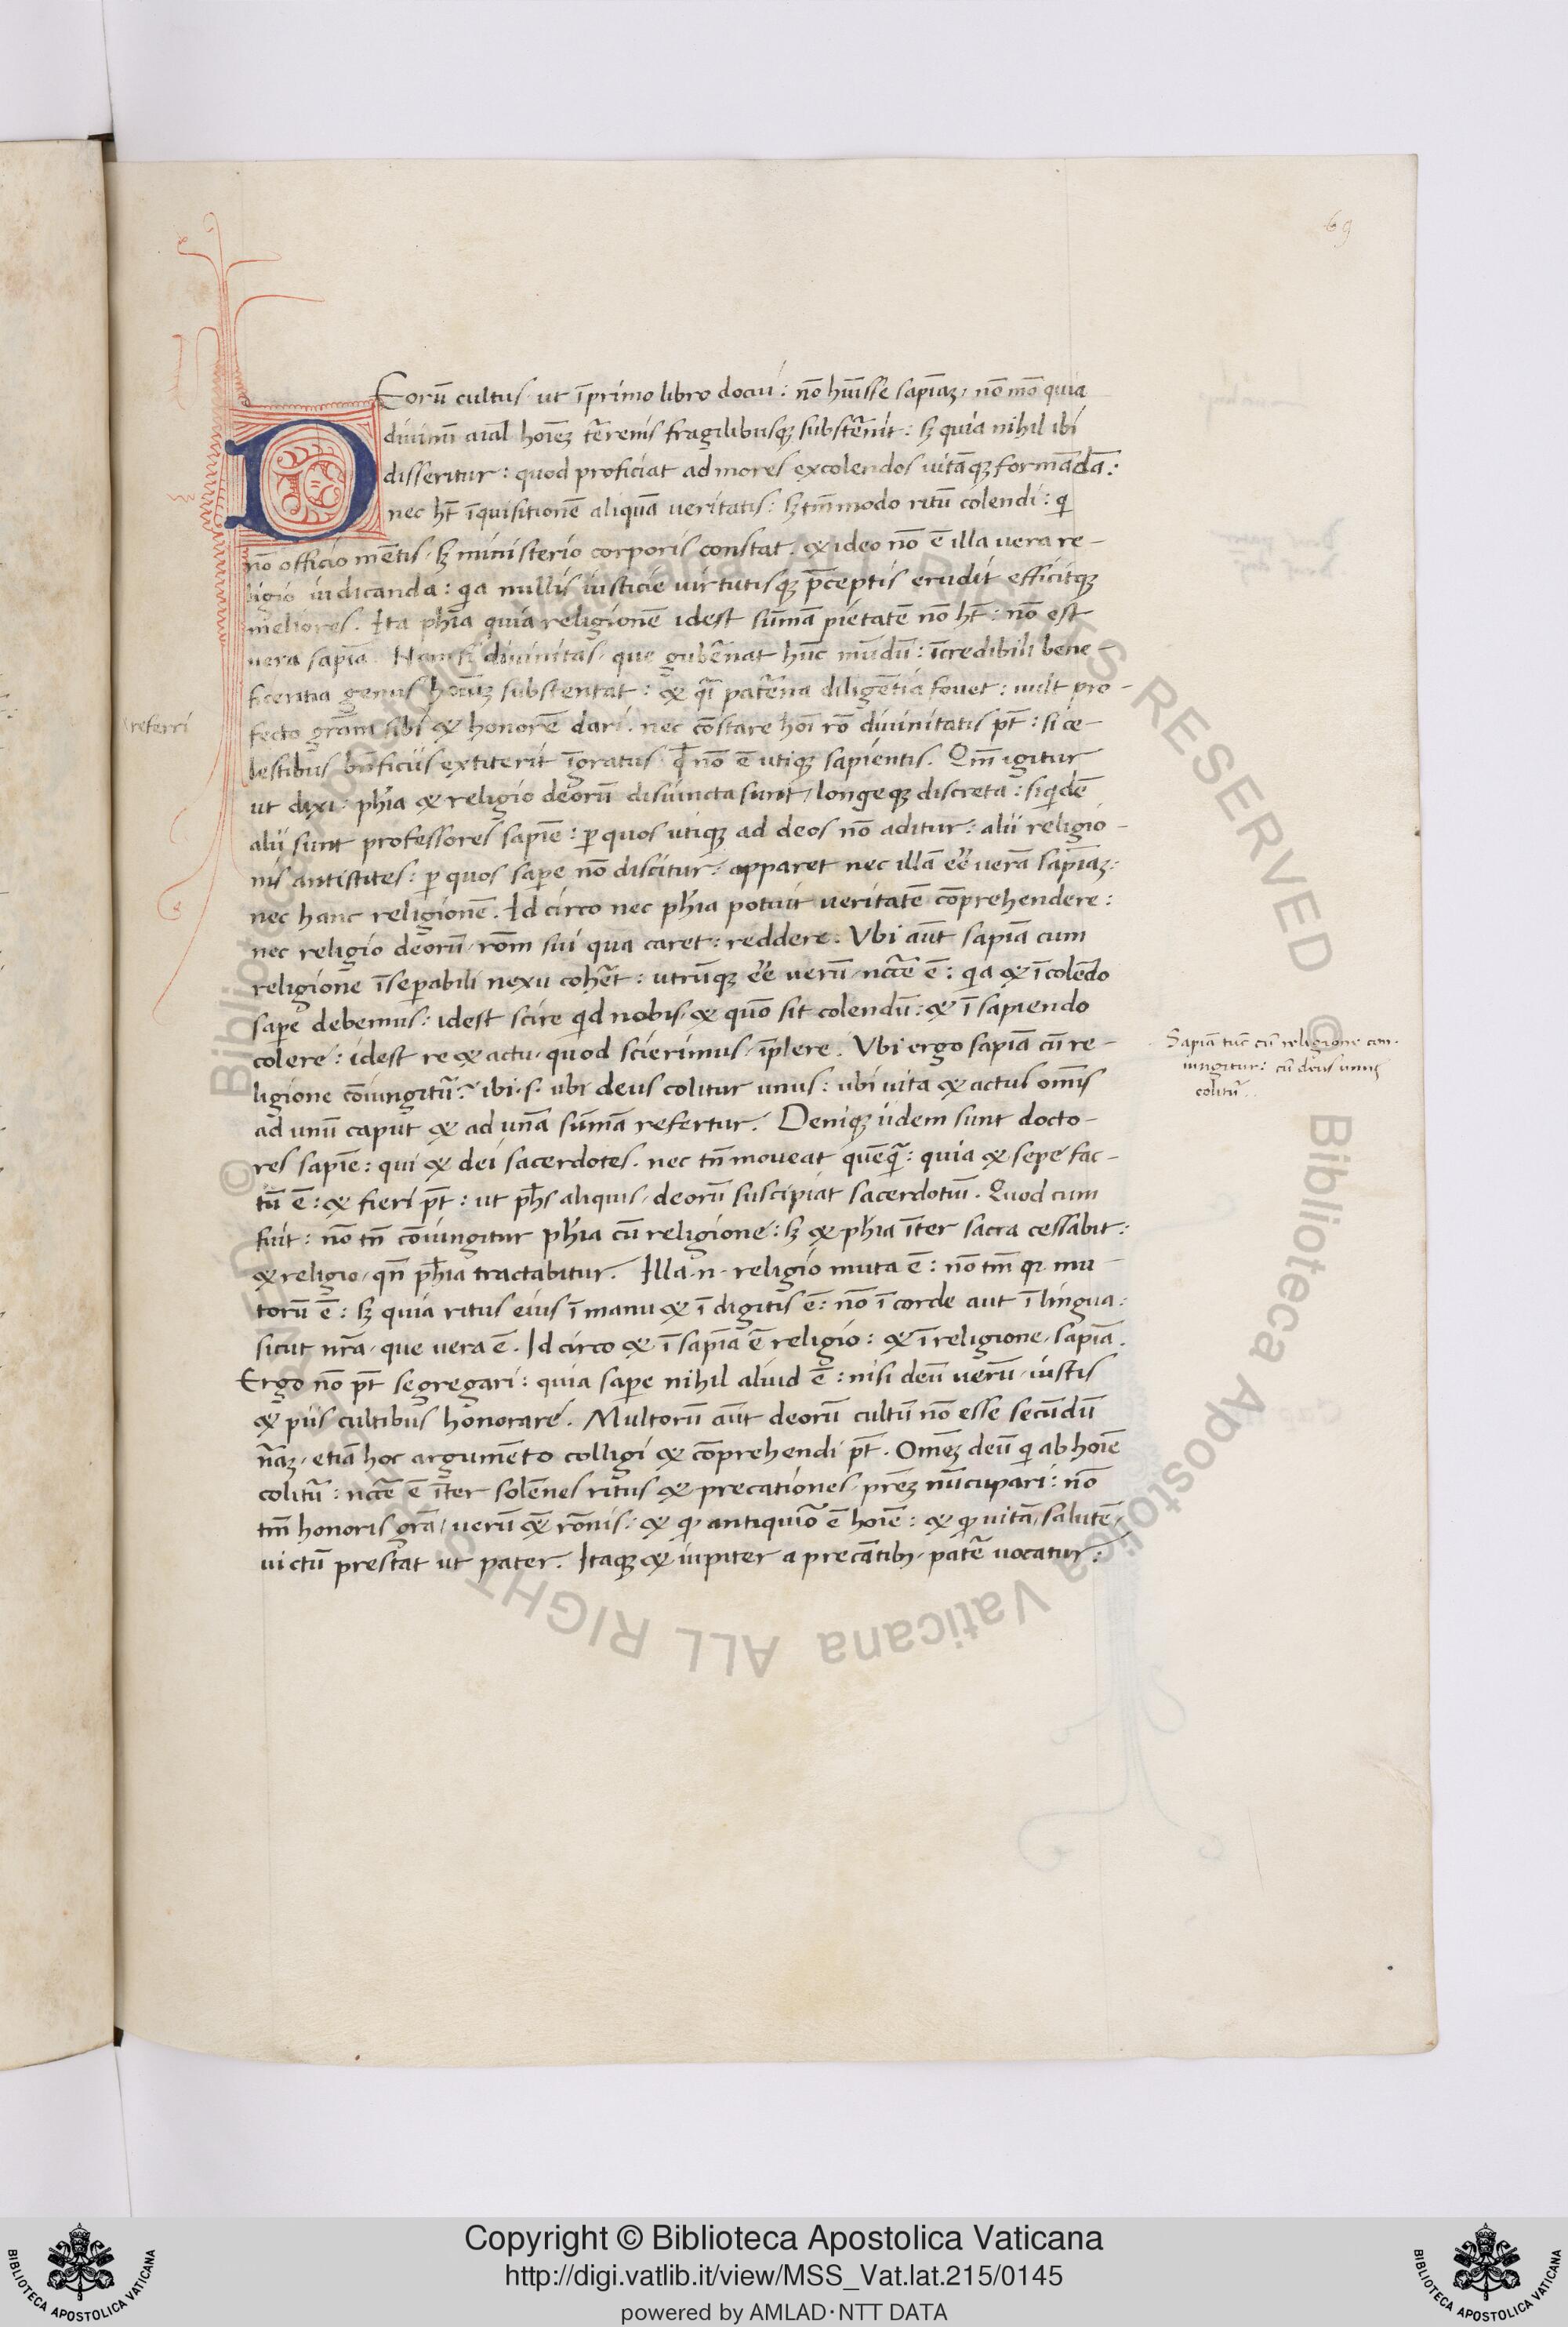 69
DEorū cultus ut ī primo libro docui: nō hūisse sapiāꝫ, nō mō quia
diuinū aīal hoīeꝫ tērenis fragilibusqꝫ substerinit: sꝫ quia nihil ibi
disseritur: quod proficiat ad mores excolendos uitāqꝫ formādā:
nec hꝫt īquisitionē aliquā ueritatis: sꝫ tm̄modo ritū colendi: qi
nō officio mētis, sꝫ ministerio corporis constat. & ideo nō ē illa uera re-
ligio iudicanda: qia nullis iusticie uirtutisqꝫ p̄ceptis erudit efficitqꝫ
meliores. Ita ph̄ia quia religionē idest sūmā pietatē nō ht̄: nō est
uera sapīa. Nam si diuinitas, que gubērnat hūc mūdū: īcredibili bene-
ficentia genus hoīuꝫ substentat: & qͥ patērna diligētia fouet: uult pro-
referri
fecto grām sibi & honorē dari. nec cōstare hoī rō diuinitatis pt̄: si ce-
lestibus bn̄ficiis extiterit īgratus: qd̄ nō ē utiqꝫ sapientis. Qm̄ igitur
ut dixi: ph̄ia & religio deorū disiuncta sunt, longeqꝫ discreta: siqidē
alii sunt professores sapīe: ꝑ quos utiqꝫ ad deos nō aditur: alii religio-
nis antistites: ꝑ quos sapere nō discitur: apparet nec illā eē uerā sapīaꝫ:
nec hanc religionē. Id circo nec ph̄ia potuit ueritatē cōprehendere:
nec religio deorū, rōm sui qua caret: reddere. Vbi aūt sapīa cum
religione īseꝑabili nexu cohēt: utrūqꝫ eē uerū, nc̄ce ē: qia & ī colēdo
saꝑe debemus: idest scire qid nobis, & quō sit colendū: & ī sapiendo
colere: idest re & actu, quod scierimus, īplere. Vbi ergo sapīa cū re-
Sapīa tūc cū religione con-
iungitur: cū deus unus
colitur̄.
ligione cōiungitur̄? ibi .s. ubi deus colitur unus: ubi uita & actus om̄is
ad unū caput & ad unā sūmā refertur. Deniqꝫ iidem sunt docto-
res sapīe: qui & dei sacerdotes. nec tn̄ moueat quēqͣ: quia & sepe fac-
tū ē: & fieri pt̄: ut ph̄s aliquis, deorū suscipiat sacerdotiū. Quod cum
fuit: nō tn̄ cōiungitur ph̄ia cū religione: sꝫ & ph̄ia īter sacra cessabit:
& religio, qn̄ ph̄ia tractabitur. Illa .n. religio muta ē: nō tm̄ qꝫ mu-
torū ē: sꝫ quia ritus eius ī manu & ī digitis ē: nō ī corde aut ī lingua:
sicut nr̄a, que uera ē. Id circo & ī sapīa ē religio: & ī religione, sapīa.
Ergo nō pt̄ segregari: quia saꝑe nihil aliud ē: nisi deū uerū, iustis
& piis cultibus honorare. Multorū aūt deorū cultū nō esse secūdū
nāꝫ, etiā hoc argumēto colligi & cōprehendi pt̄. Omēꝫ deū qi ab hoīe
colitur̄: nc̄ce ē īter solēnes ritus & precationes, prēꝫ nūcupari: nō
tm̄ honoris grā, uerū & rōnis: & qꝫ antiquiō ē hoīe: & qꝫ uitā, salutē,
uictū prestat ut pater. Itaqꝫ & iupiter a precātibꝫ, patē uocatur:
Copyright © Biblioteca Apostolica Vaticana
http://digi.vatlib.it/view/MSS_Vat.lat.215/0145
powered by AMLAD·NTT DATA
BIBLIOTECA APOSTOLICA VATICANA
BIBLIOTECA APOSTOLICA VATICANA